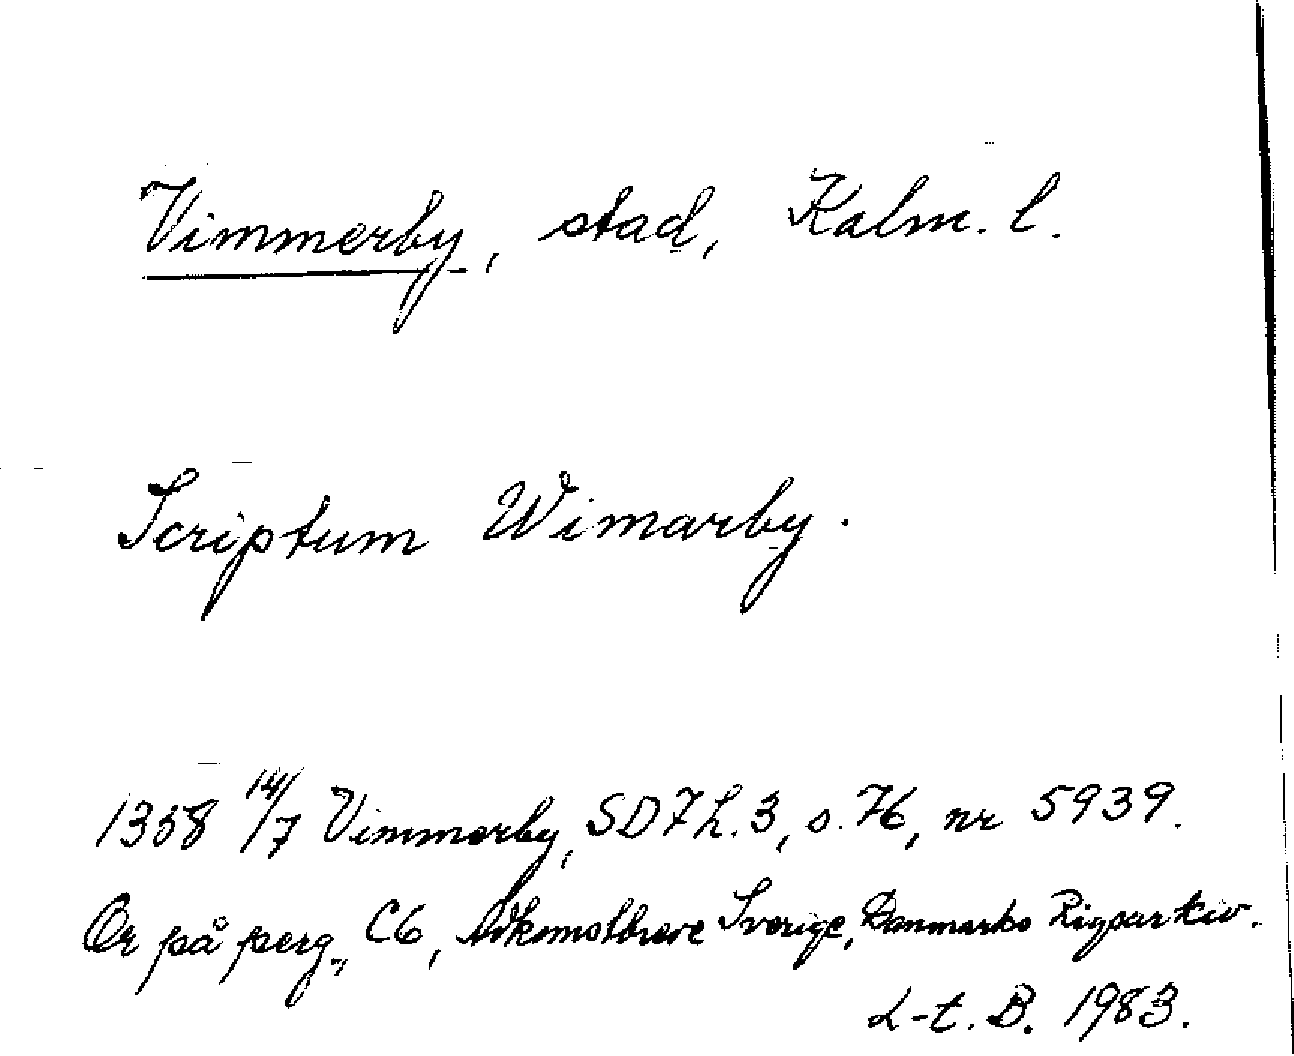 Vimmerby, stad, Kalm. l.
Scriptum Wimarby.
1358 14/7 Vimmerby, SD 7 h. 3, s. 76, nr 5939.
Or på perg., C6, Adkomstbreve Sverige, Danmarks Rigsarkiv.
L-t. B. 1983.